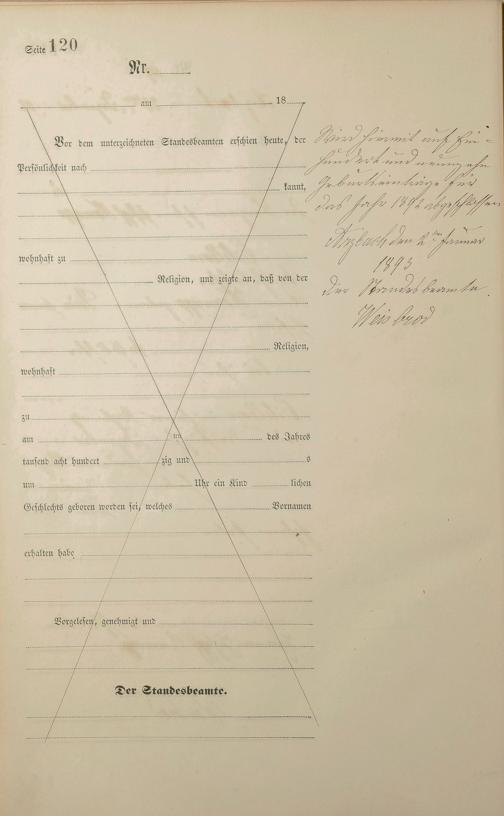 Seite 120
Nr.
am 18
Vor dem unterzeichneten Standesbeamten erschien heute, der
Persönlichkeit nach
kannt,
wohnhaft zu
Religion, und zeigte an, daß von der
Religion,
wohnhaft
zu
am im des Jahres
tausend acht hundert zig und s
um Uhr ein Kind lichen
Geschlechts geboren worden sei, welches Vornamen
erhalten habe
Vorgelesen, genehmigt und
Der Standesbeamte.
Wird hiermit auf Ein=
hundert und neunzehn
Geburtseinträge für
das Jahr 1892 abgeschlossen
Arzbach den 2ten Januar
1893
Der Standesbeamte
Weisbrod